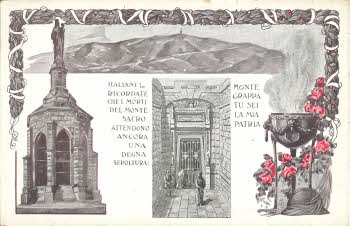 ITALIANI
RICORDATE
CHE I MORTI
DEL MONTE
SACRO
ATTENDONO
ANCORA
UNA
DEGNA
SEPOLTURA:
MONTE
GRAPPA
TU SEI
LA MIA
PATRIA